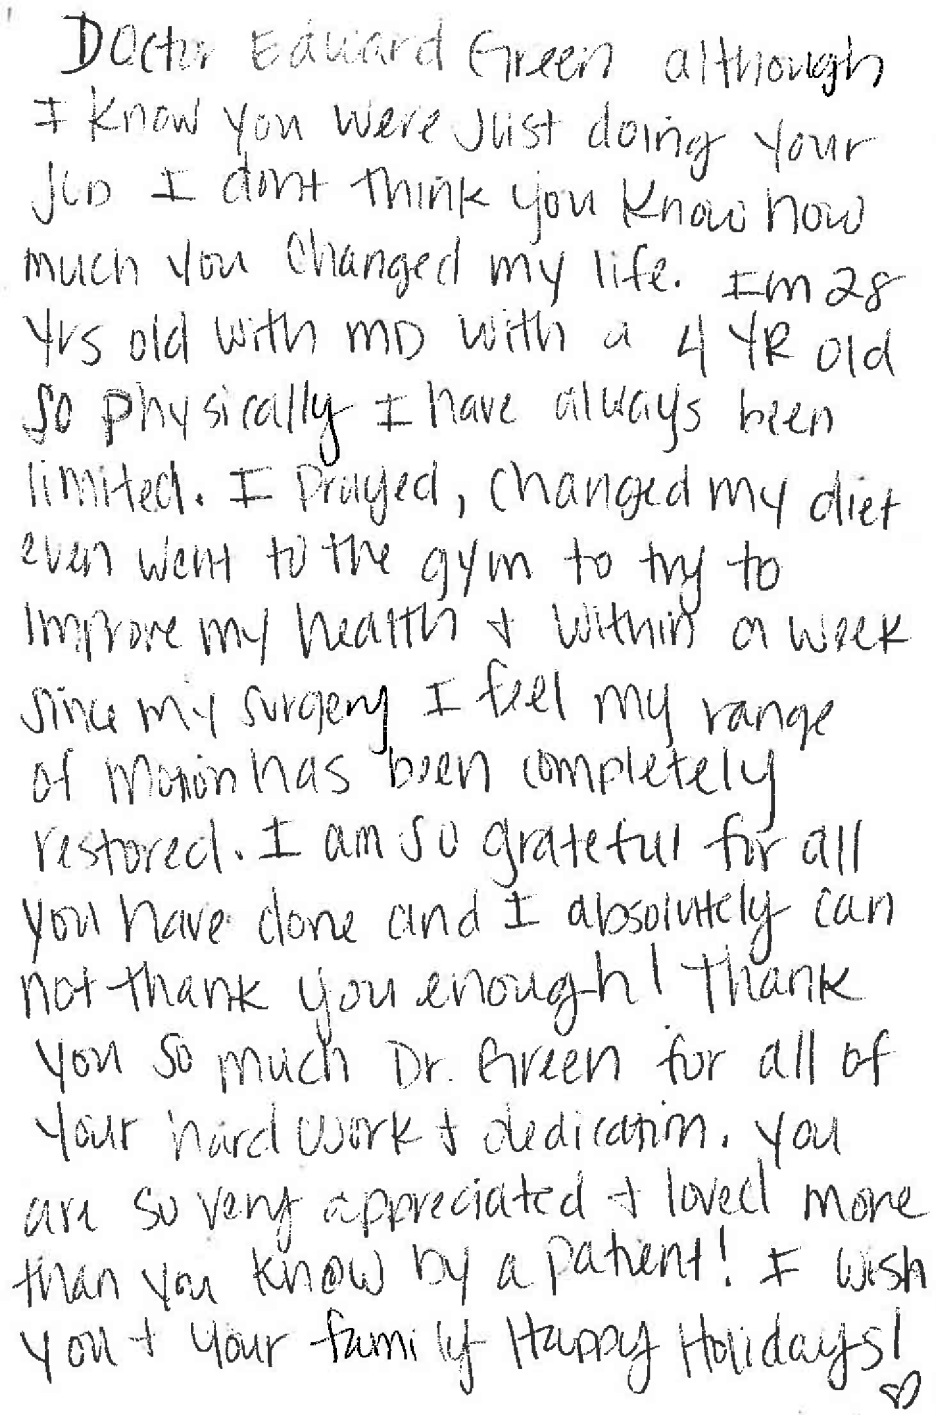 Doctor Edward Green although
I know you were just doing your
job I dont think you know how
much you changed my life. Im 28
yrs old with MD with a 4 YR old
so physically I have always been
limited. I prayed, changed my diet
even went to the gym to try to
improve my health + within a week
since my surgery I feel my range
of motion has been completely
restored. I am so grateful for all
you have done and I absolutely can
not thank you enough! Thank
you so much Dr. Green for all of
your hard work + dedication. You
are so very appreciated + loved more
than you know by a patient! I wish
you + your family Happy Holidays!
♡